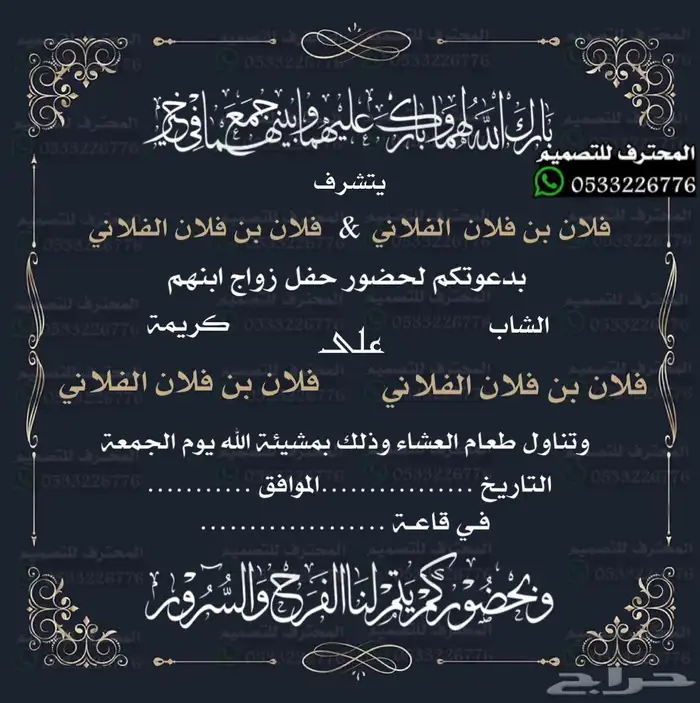 بارك الله لهما وبارك عليهما وجمع بينهما في خير
المحترف للتصميم
0533226776
يتشرف
فلان بن فلان الفلاني & فلان بن فلان الفلاني
بدعوتكم لحضور حفل زواج ابنهم
الشاب
كريمة
على
فلان بن فلان الفلاني
فلان بن فلان الفلاني
وتناول طعام العشاء وذلك بمشيئة الله يوم الجمعة
التاريخ ................الموافق ...........
في قاعة ...................
وبحضوركم يتم لنا الفرح والسرور
حراج